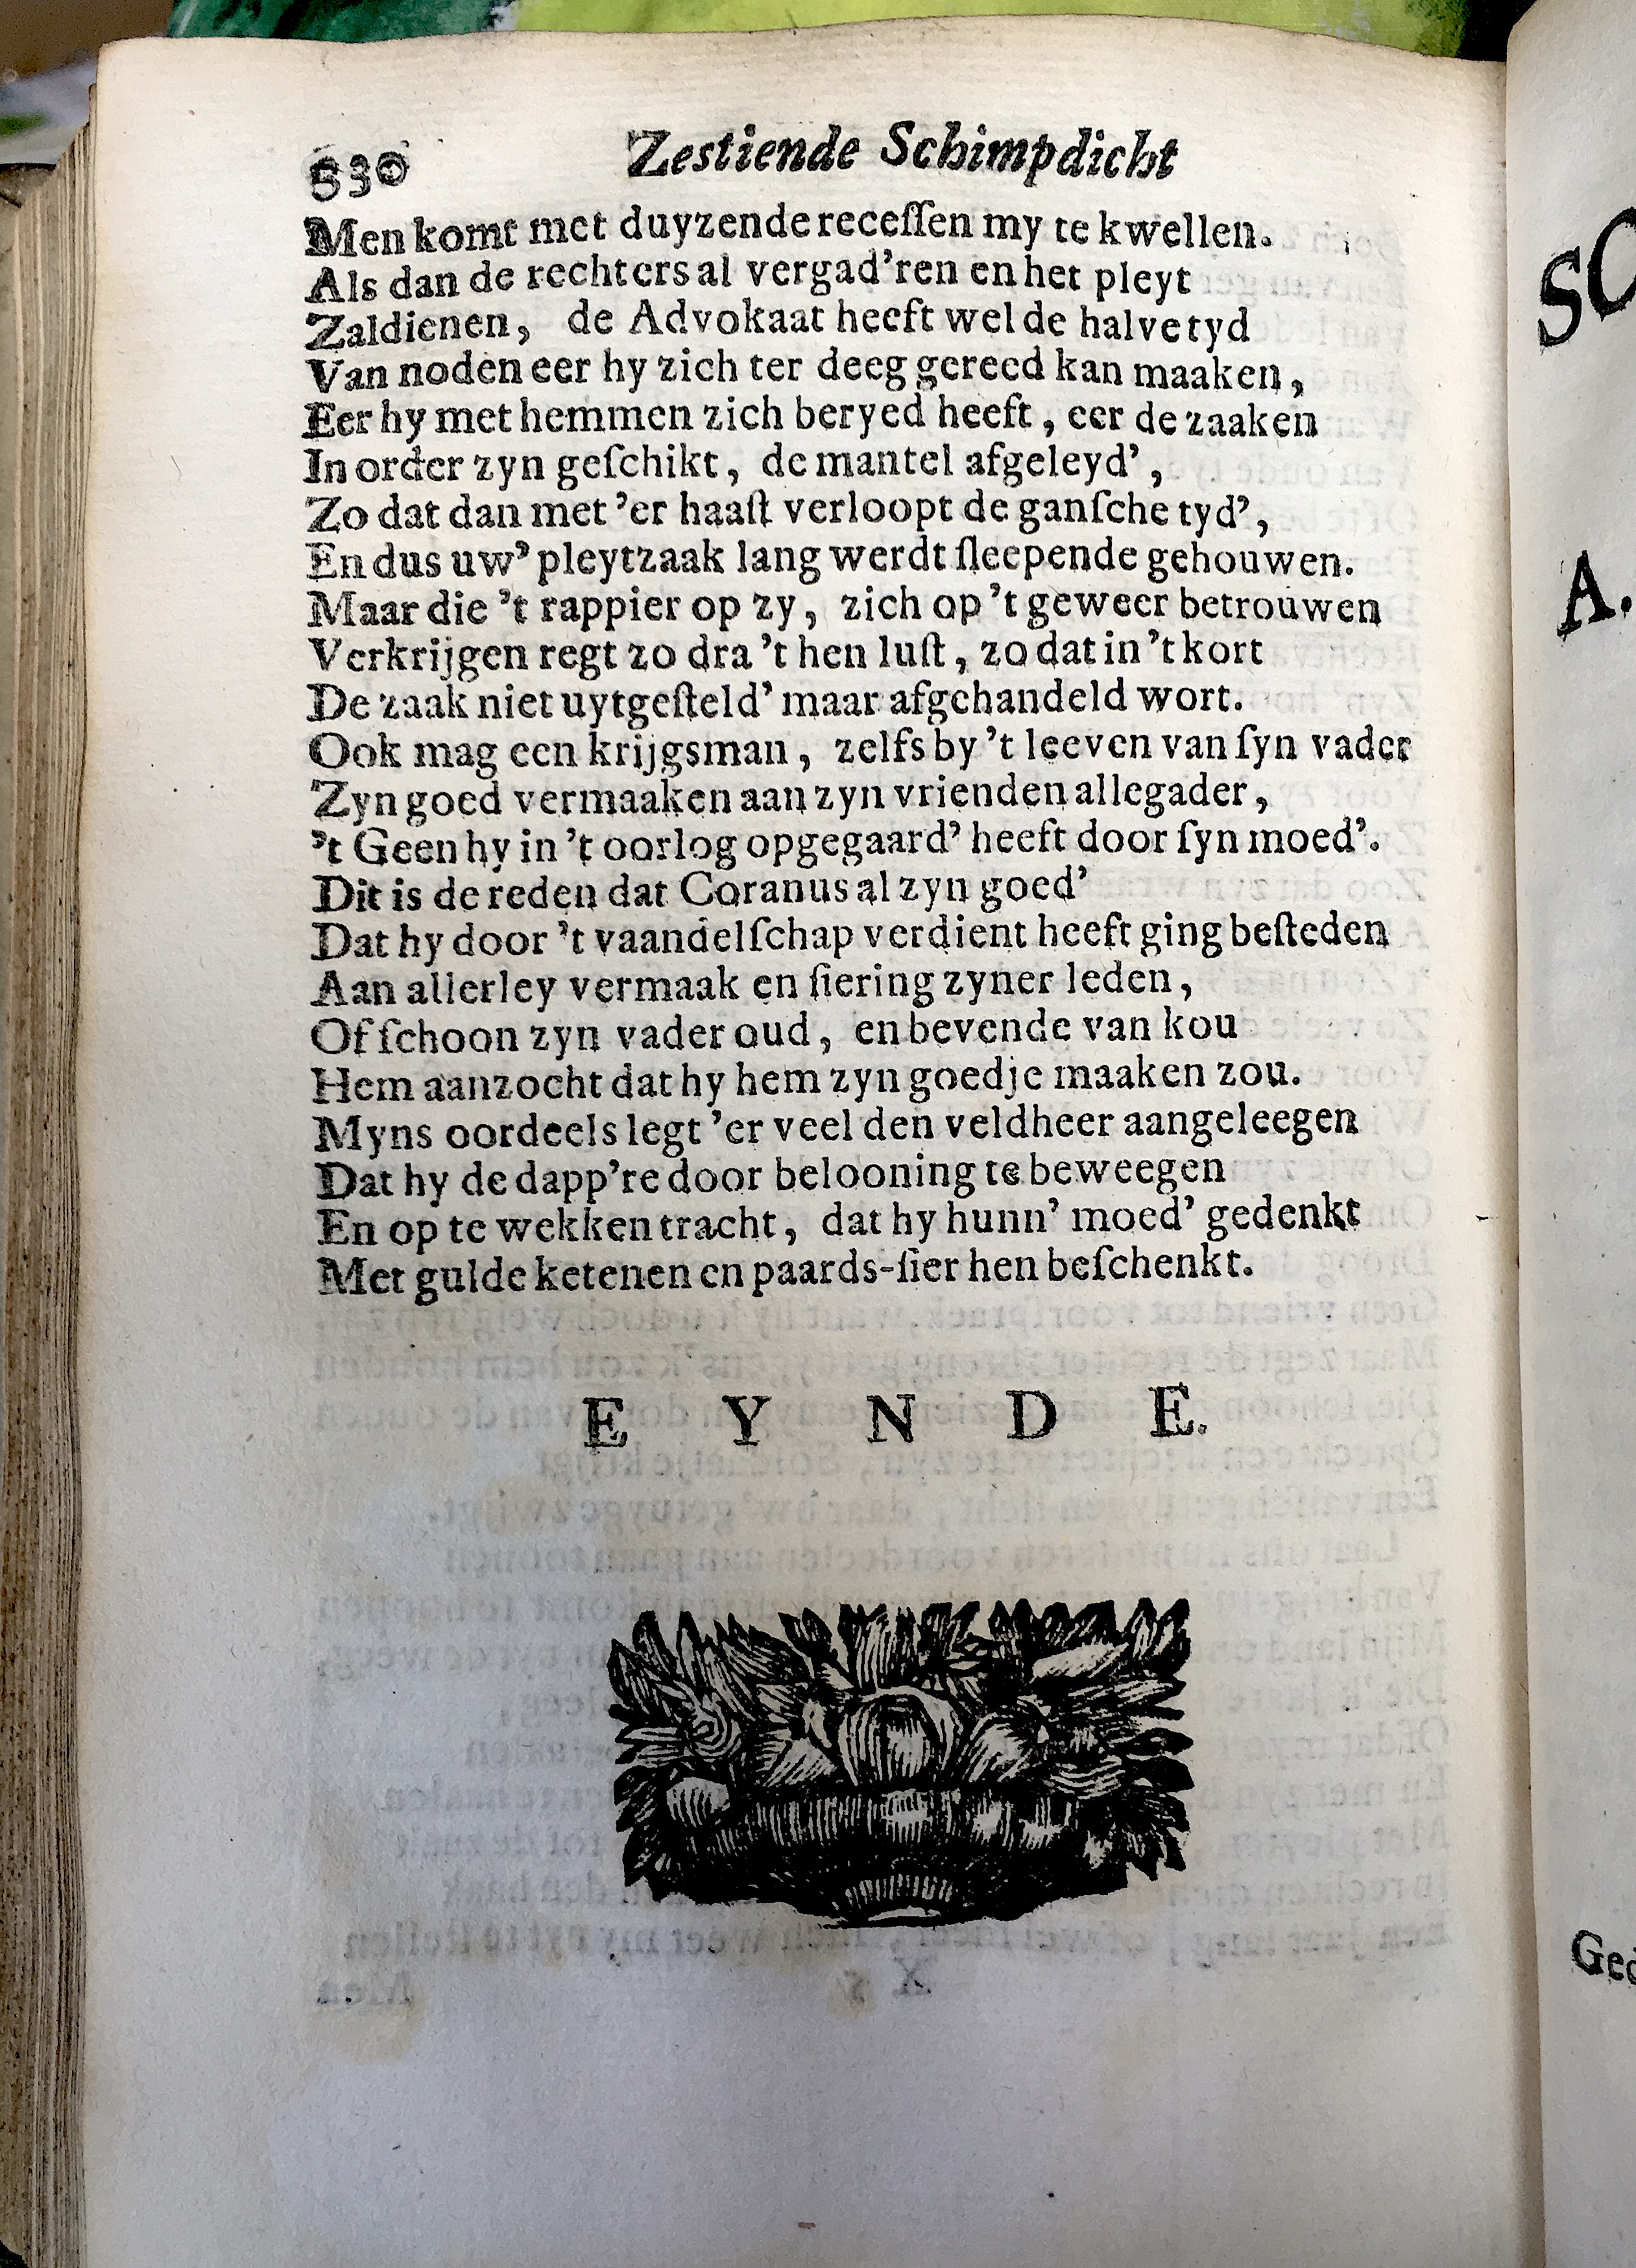 530 Zestiende Schimpdicht
Men komt met duyzende receſſen my te kwellen.
Als dan de rechters al vergad’ren en het pleyt
Zal dienen, de Advokaat heeft wel de halve tyd
Van noden eer hy zich ter deeg gereed kan maaken,
Eer hy met hemmen zich beryed heeft, eer de zaaken
In order zyn geſchikt, de mantel afgeleyd’,
Zo dat dan met ’er haaſt verloopt de ganſche tyd’,
En dus uw’ pleytzaak lang werdt ſleepende gehouwen.
Maar die ’t rappier op zy, zich op ’t geweer betrouwen
Verkrijgen regt zo dra ’t hen luſt, zo dat in ’t kort
De zaak niet uytgeſteld’ maar afgehandeld wort.
Ook mag een krijgsman, zelfs by ’t leeven van ſyn vader
Zyn goed vermaaken aan zyn vrienden allegader,
’t Geen hy in ’t oorlog opgegaard’ heeft door ſyn moed’.
Dit is de reden dat Coranus al zyn goed’
Dat hy door ’t vaandelſchap verdient heeft ging beſteden
Aan allerley vermaak en ſiering zyner leden,
Of ſchoon zyn vader oud, en bevende van kou
Hem aanzocht dat hy hem zyn goedje maaken zou.
Myns oordeels legt ’er veel den veldheer aangeleegen
Dat hy de dapp’re door belooning te beweegen
En op te wekken tracht, dat hy hunn’ moed’ gedenkt
Met gulde ketenen en paards-ſier hen beſchenkt.
E Y N D E.
SC
A.
Ged